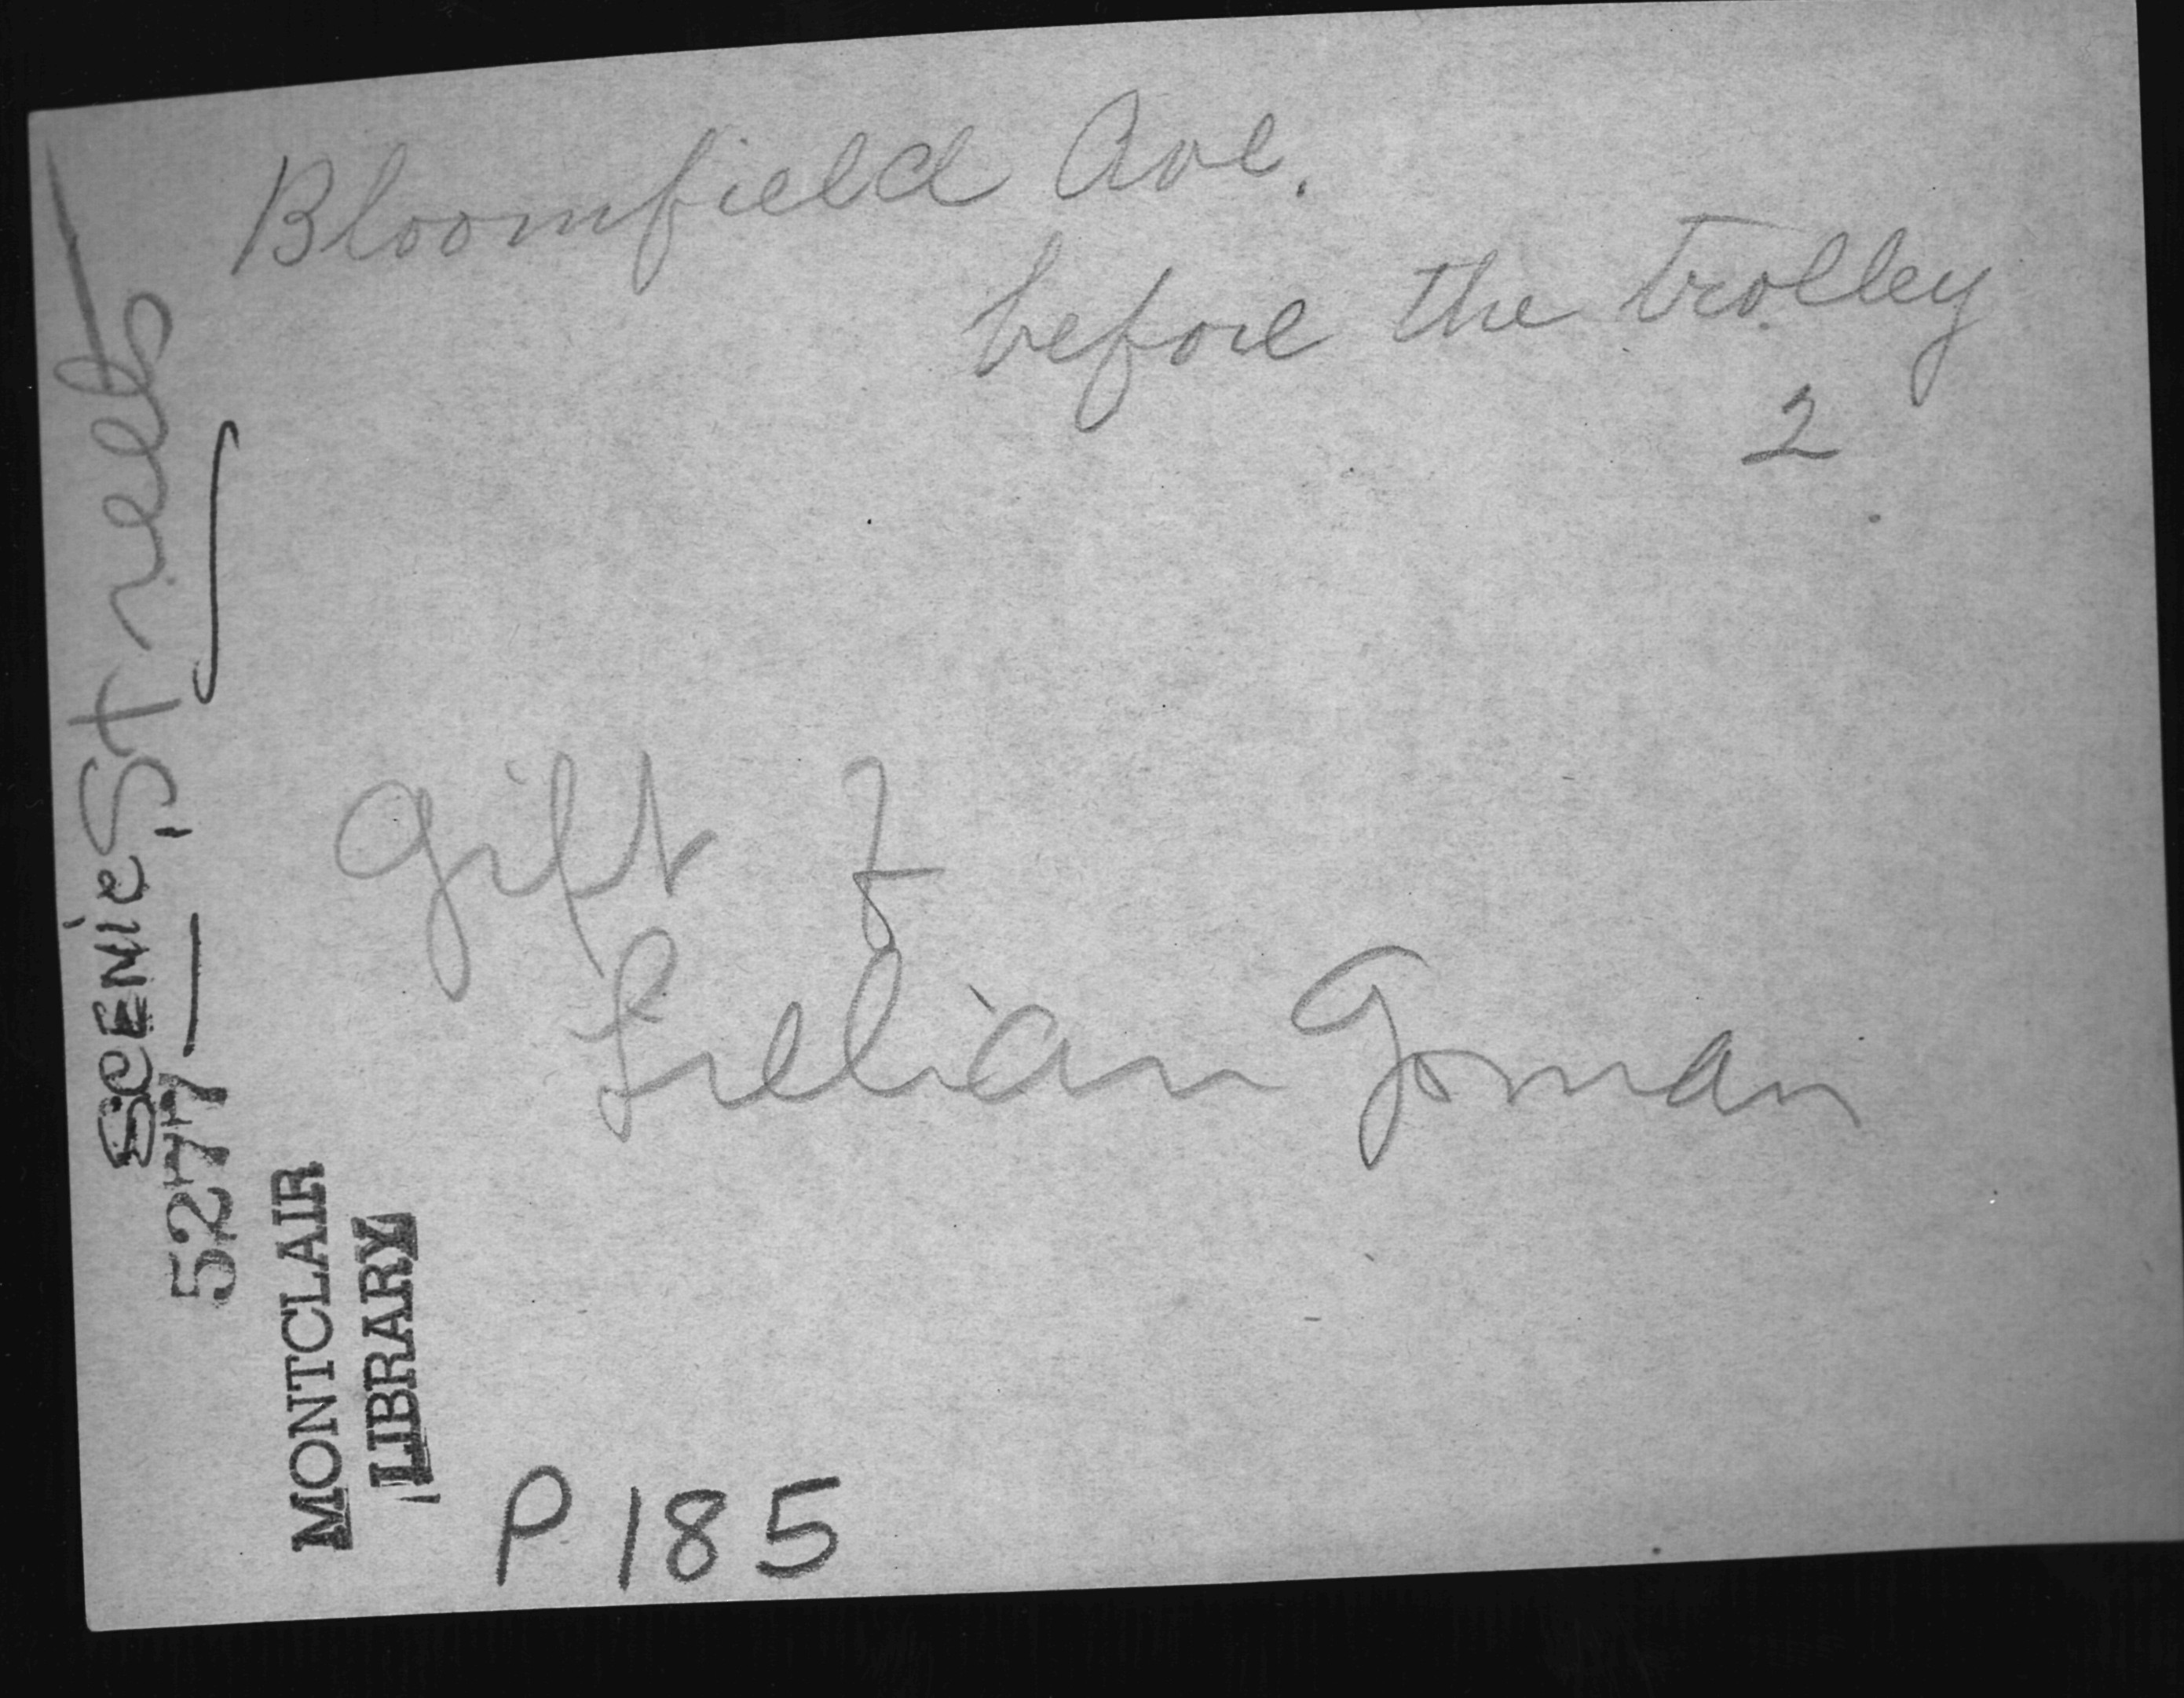 Bloomfield Ave.
before the trolley
2
Gift of
Lillian Goman
P 185
SCENIC, Streets
5277
MONTCLAIR
LIBRARY